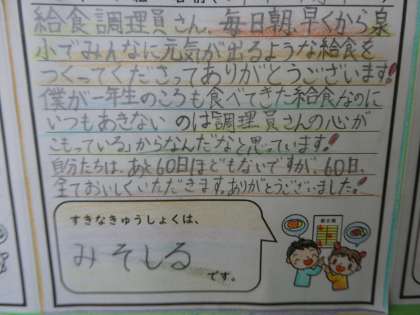 給食調理員さん、毎日朝、早くから泉
小でみんなに元気が出るような給食を
つくってくださってありがとうございます。
僕が一年生のころも食べてきた給食なのに
いつもあきないのは「調理員さんの心が
こもっている」からなんだなと思っています。
自分たちは、あと60日ほどもないですが、60日、
全ておいしくいただきます。ありがとうございました。
すきなきゅうしょくは、
みそしる
です。